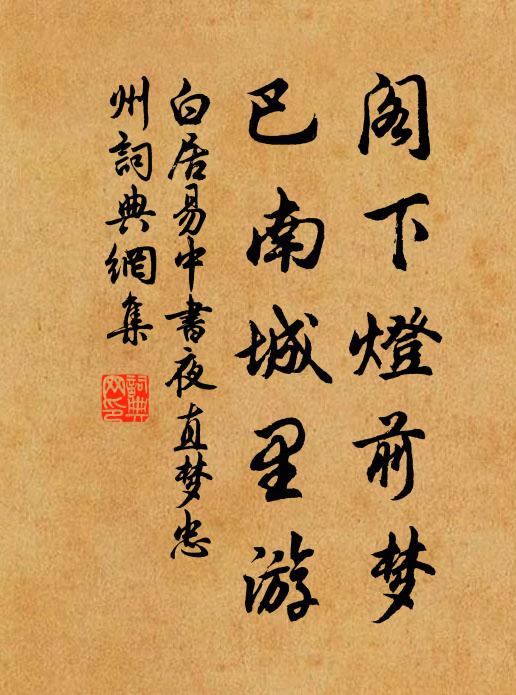 阁下燈前梦
巴南城里游
白居易中書夜直梦忠
州詞典網集
詞典
网印